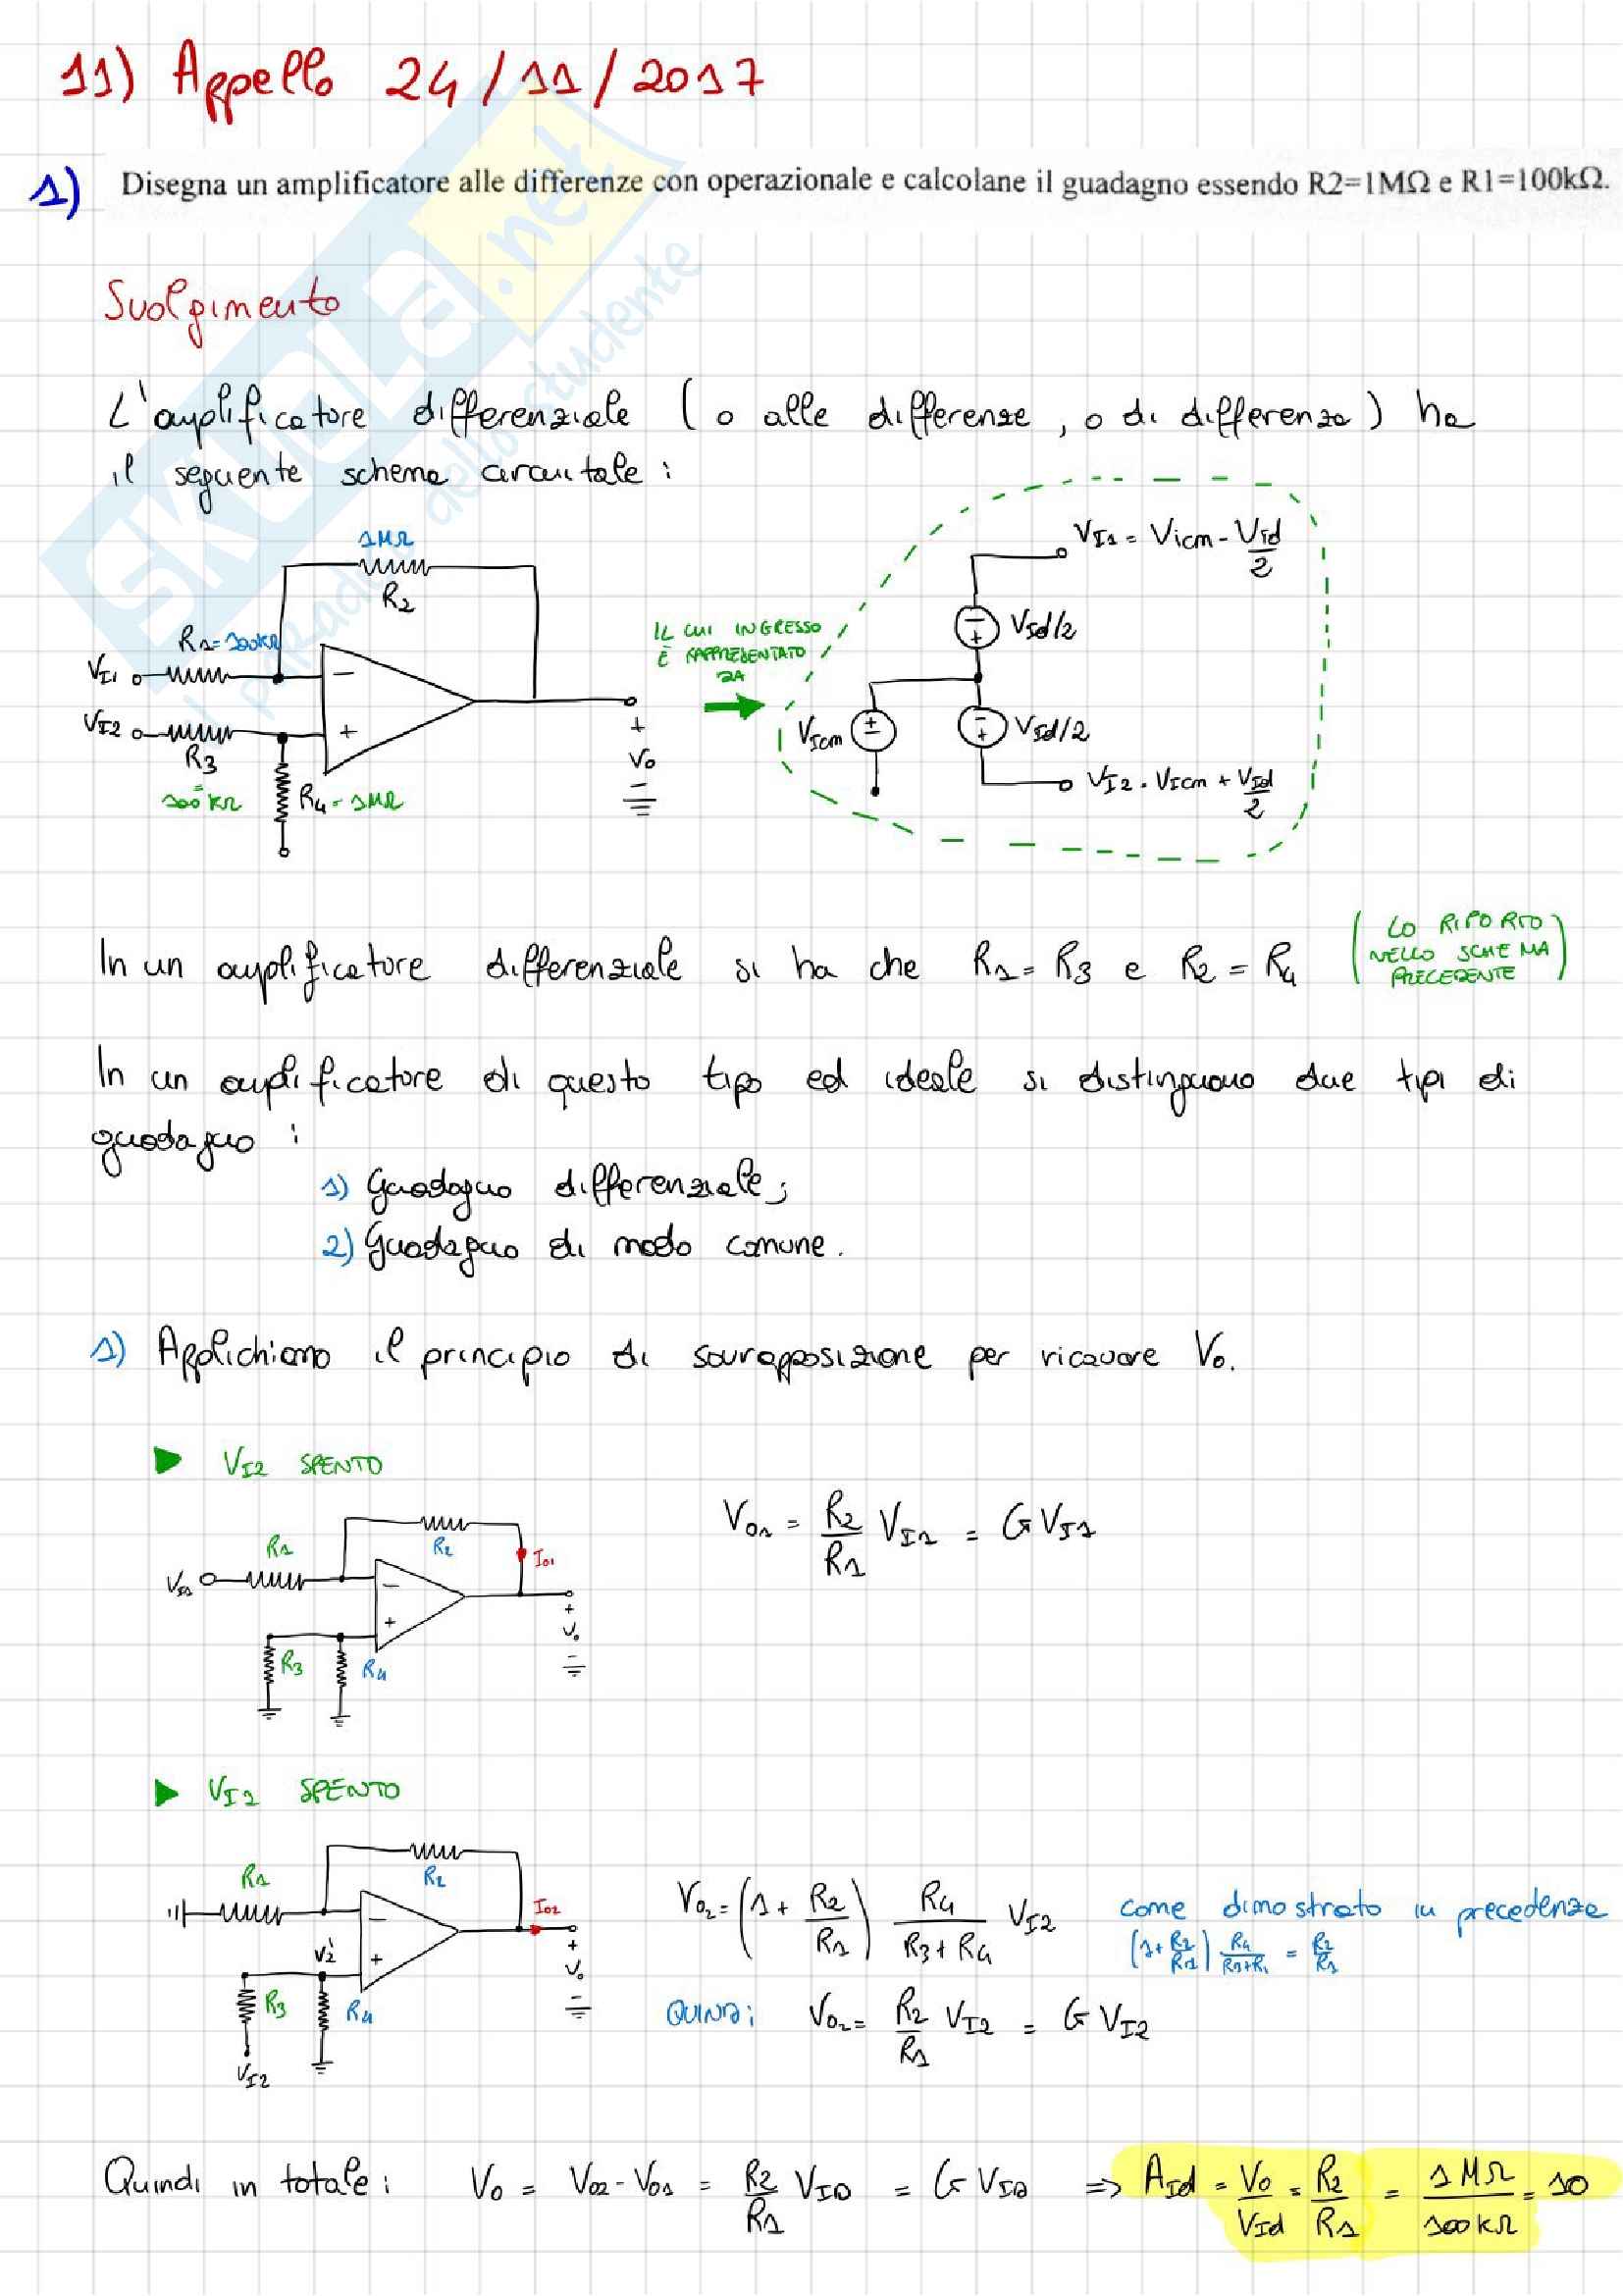 11) Appello 24/11/2017
1) Disegna un amplificatore alle differenze con operazionale e calcolane il guadagno essendo R2=1MΩ e R1=100kΩ.
Svolgimento
L'amplificatore differenziale (o alle differenze, o di differenza) ha
il seguente schema circuitale:
1MΩ
R2
R1=100kΩ
VI1
VI2
R3
=
100kΩ
R4=1MΩ
+
Vo
-
IL CUI INGRESSO
È RAPPRESENTATO
DA
VI1 = Vicm - VId/2
VId/2
VIcm
VId/2
VI2 = VIcm + VId/2
In un amplificatore differenziale si ha che R1=R3 e R2=R4 (LO RIPORTO
NELLO SCHEMA
PRECEDENTE)
In un amplificatore di questo tipo ed ideale si distinguono due tipi di
guadagno:
1) Guadagno differenziale;
2) Guadagno di modo comune.
1) Applichiamo il principio di sovrapposizione per ricavare Vo.
▶ VI2 SPENTO
R1
R2
IO1
VI1
R3
R4
+
Vo
-
VO1 = R2/R1 VI1 = G VI1
▶ VI1 SPENTO
R1
R2
IO2
V2'
R3
R4
VI2
+
Vo
-
VO2 = (1 + R2/R1) R4/(R3+R4) VI2 come dimostrato in precedenza
(1+R2/R1) R4/(R3+R4) = R2/R1
QUINDI: VO2 = R2/R1 VI2 = G VI2
Quindi in totale: Vo = VO2 - VO1 = R2/R1 VID = G VID ⇒ AId = Vo/VId = R2/R1 = 1MΩ/100kΩ = 10
SKUOLA.net
dello studente